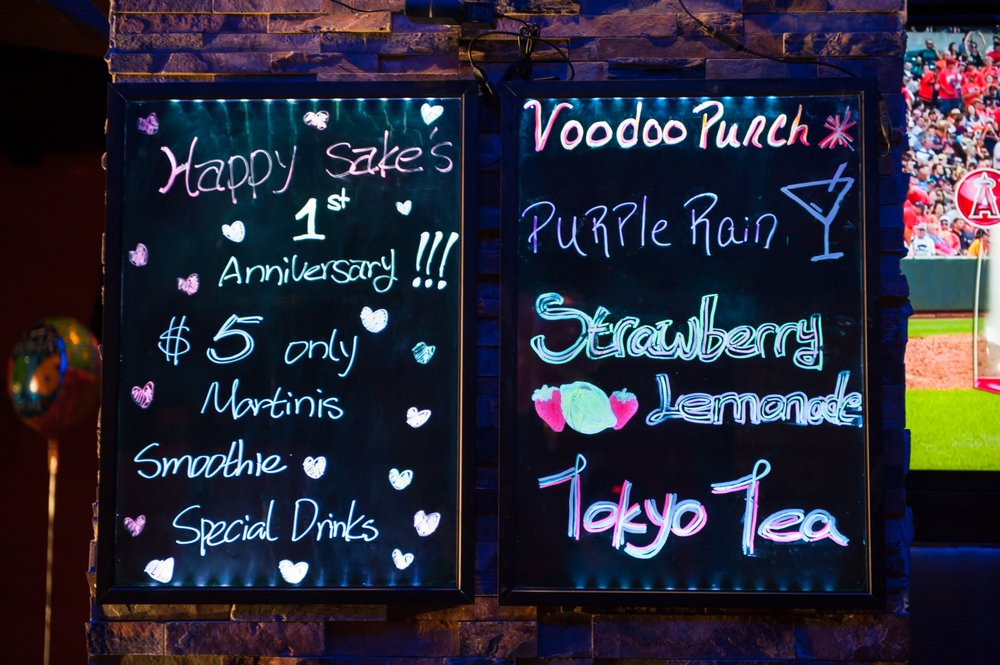 Happy Sake's
1st
Anniversary!!!
$5 only
Martinis
Smoothie
Special Drinks
Voodoo Punch
PURPle Rain
Strawberry
Lemonade
Tokyo Tea
A